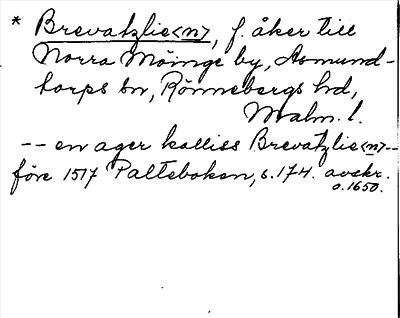 * Brevatzlie<n>, f. åker till
Norra Möinge by, Asmund-
torps sn, Rönnebergs hd,
Malm. l.
-- en ager kalliss Brevatzlie<n>--
före 1517 Palteboken, s. 174. avskr.
o. 1650.